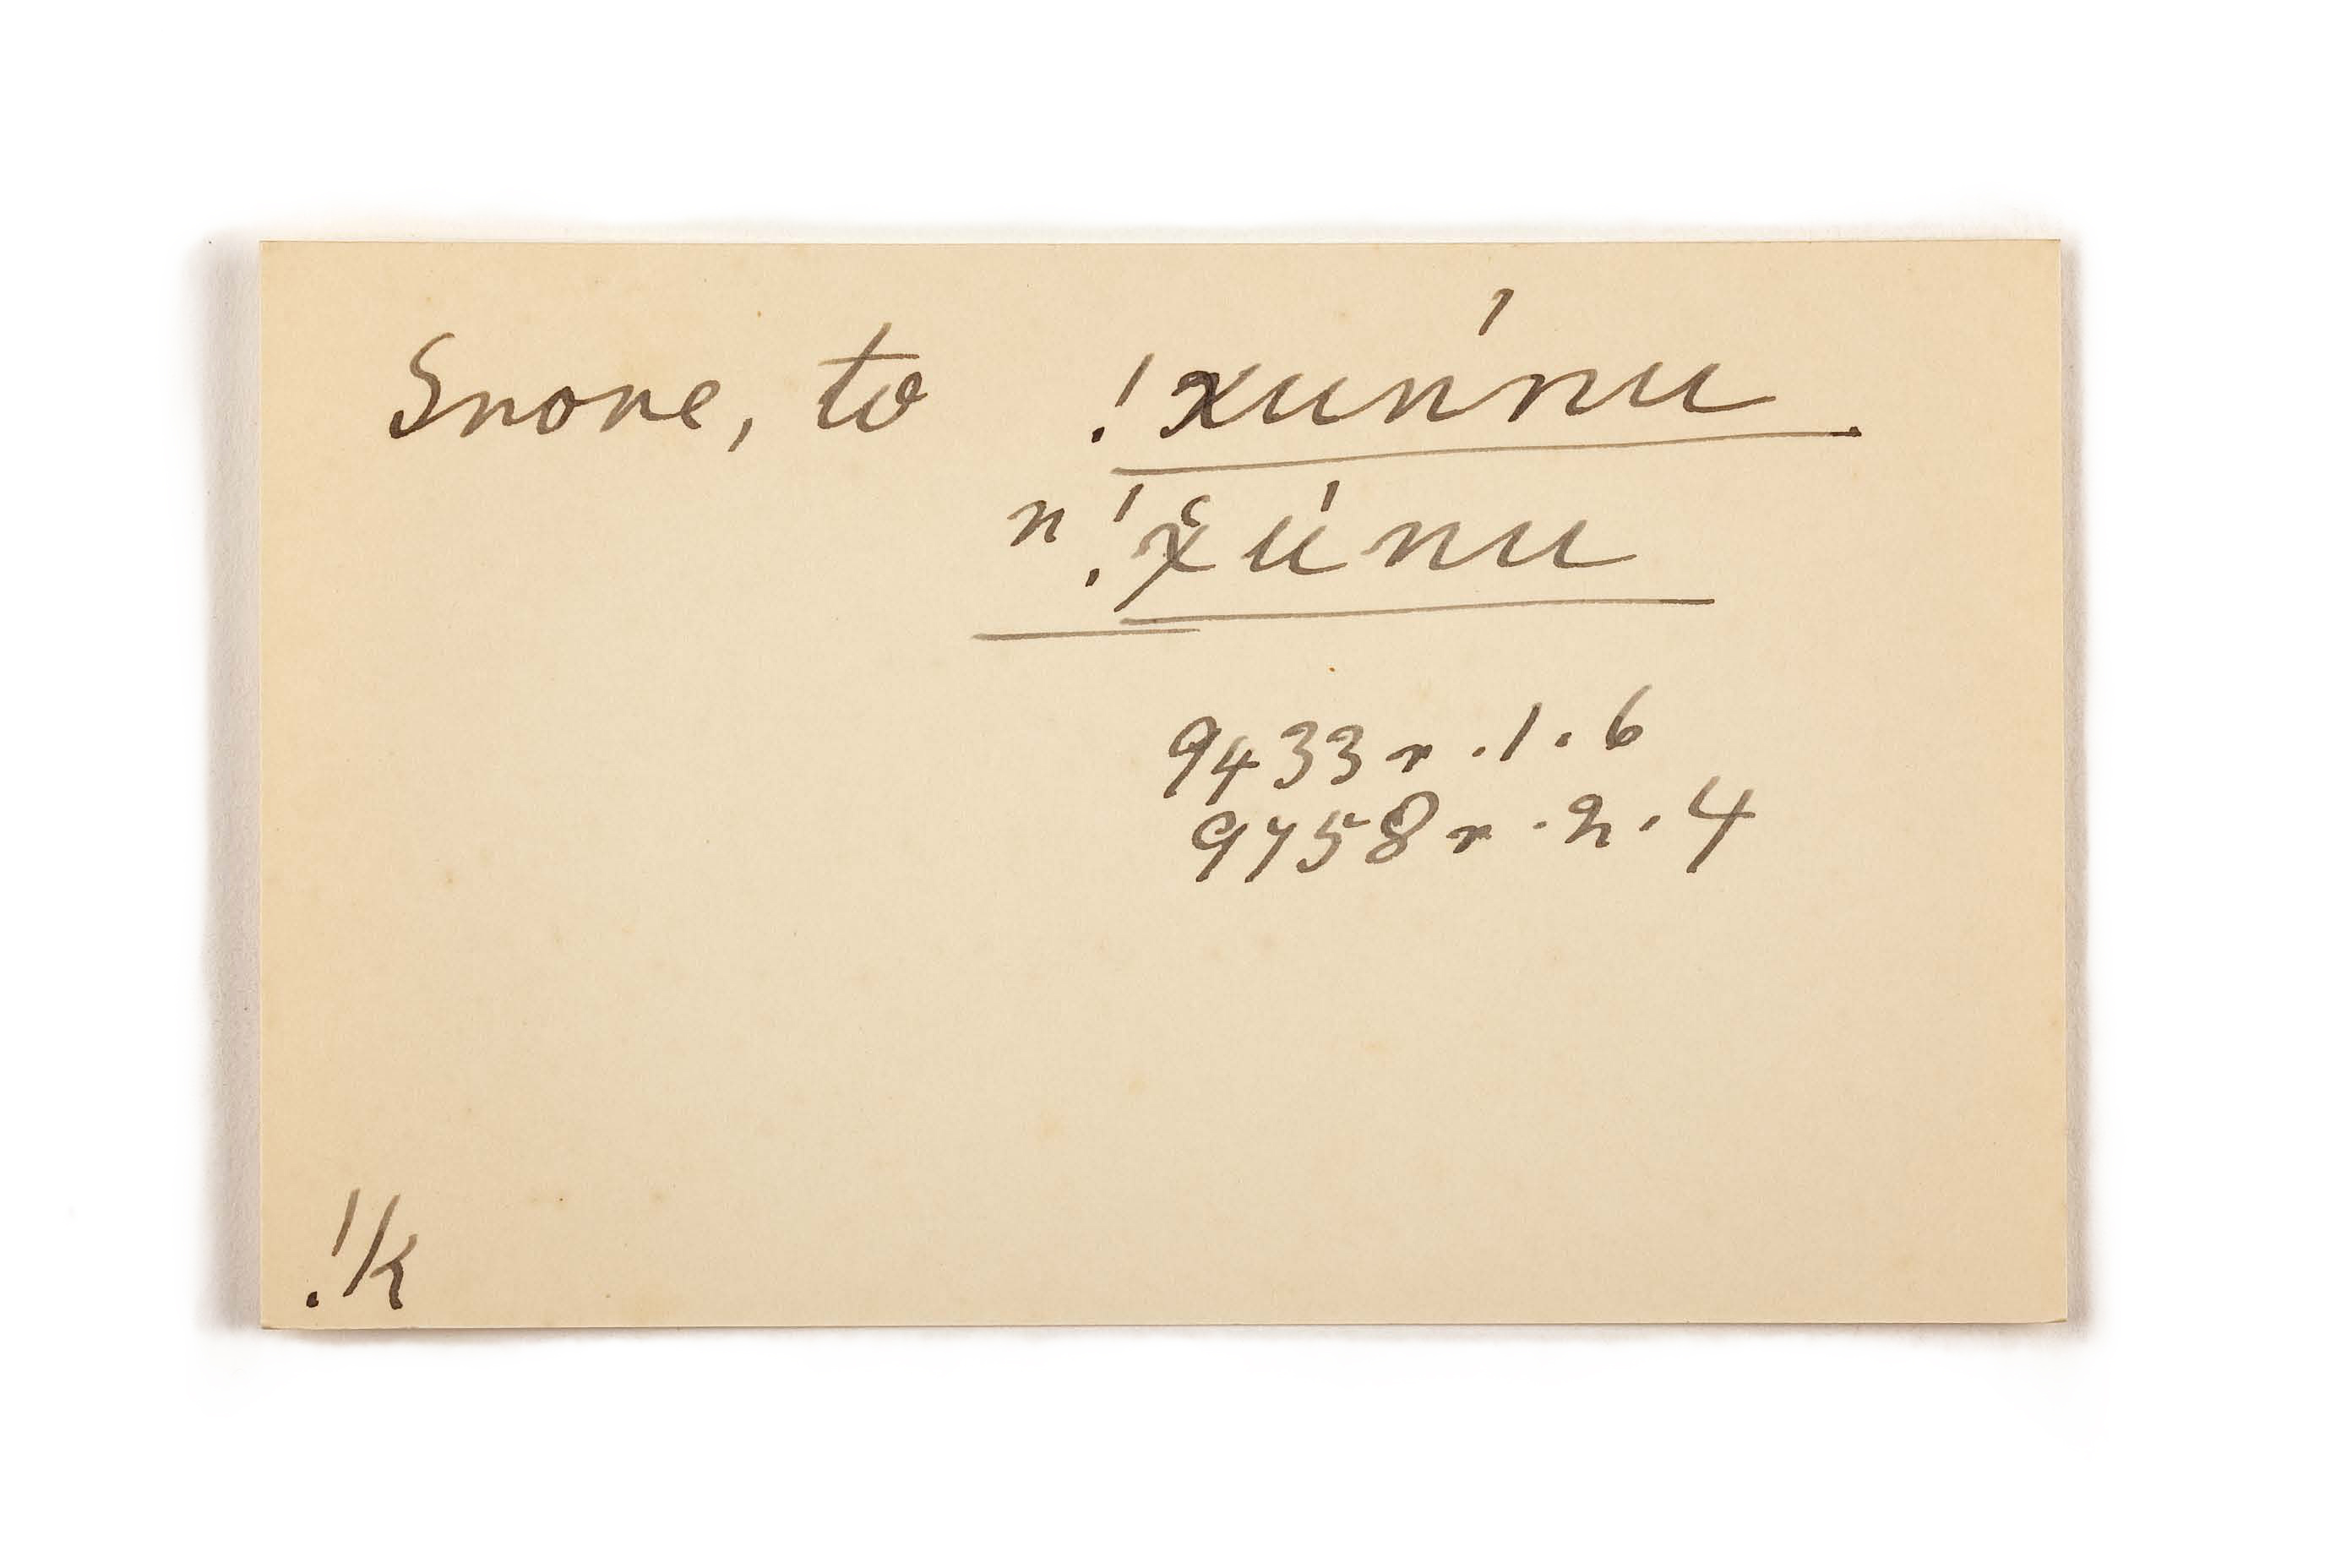 Snore, to !xun´nu.
n!x̆únu
9433 r. 1. 6
9758 r. 2. 4
!k